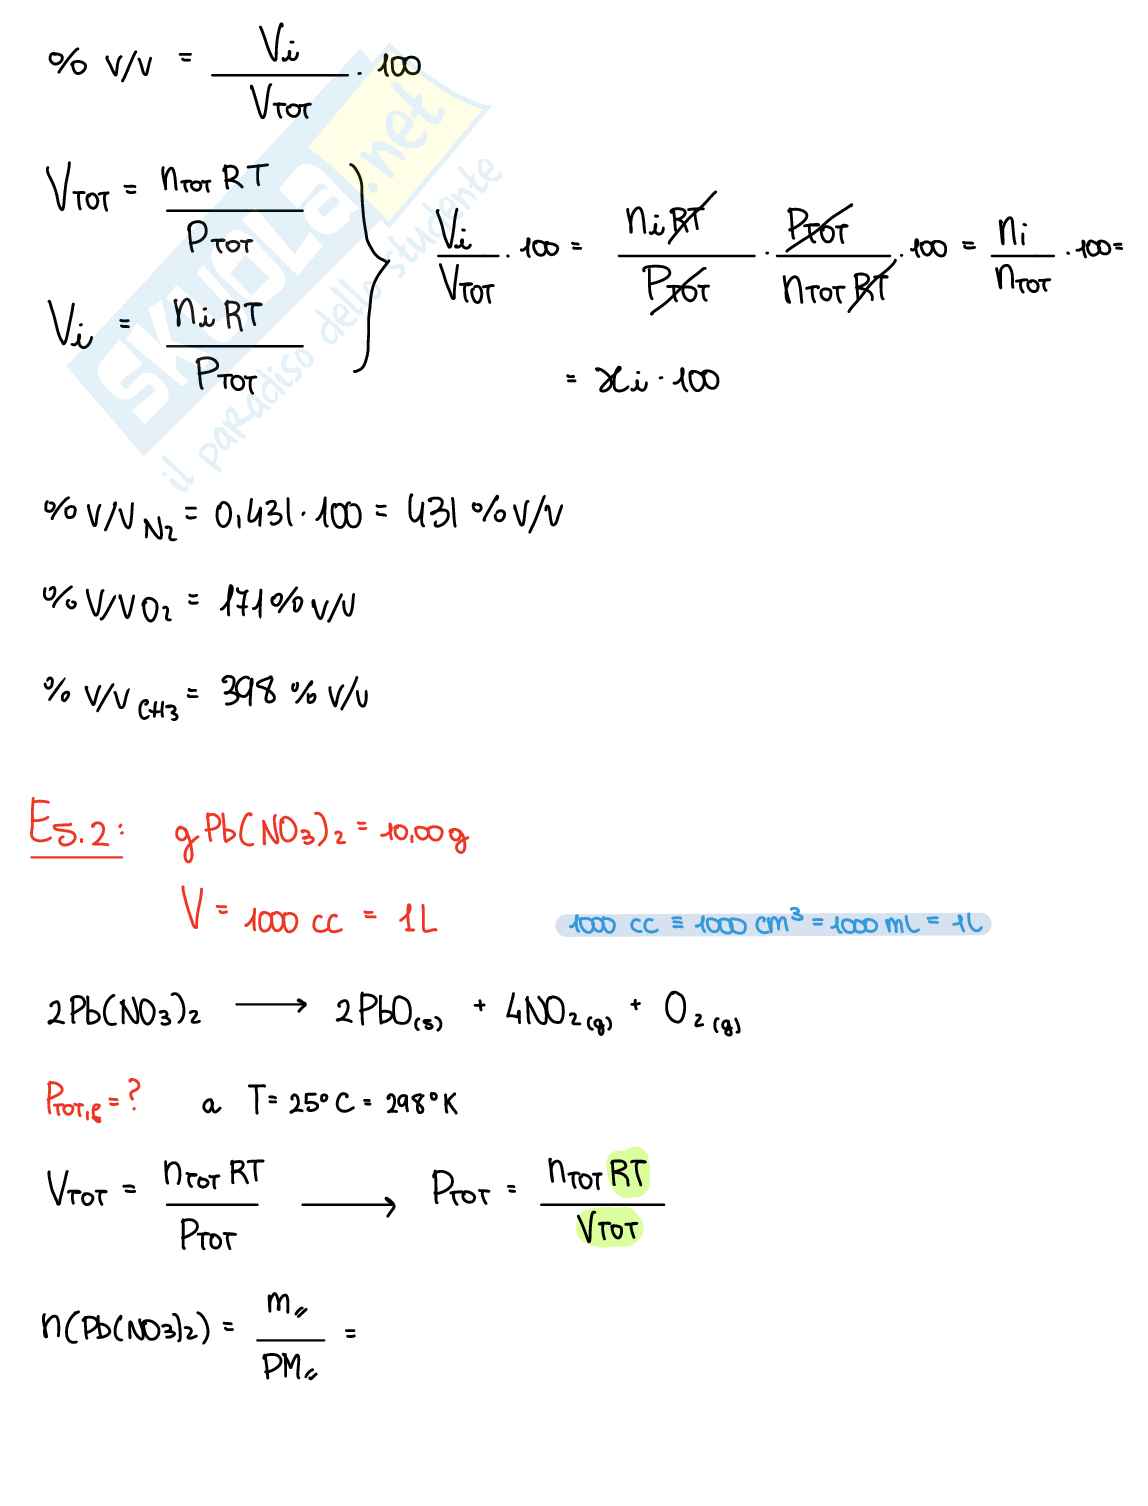 % v/v = Vi / VTOT · 100
VTOT = nTOT RT / PTOT
Vi = ni RT / PTOT
Vi / VTOT · 100 = ni RT / PTOT · PTOT / nTOT RT · 100 = ni / nTOT · 100 =
= xi · 100
SKUOLA.net
il paradiso dello studente
% v/v N2 = 0,431 · 100 = 431 % v/v
% v/v O2 = 171 % v/v
% v/v CH3 = 398 % v/v
Es.2: g Pb(NO3)2 = 10,00 g
V = 1000 cc = 1L
1000 cc ≡ 1000 cm³ = 1000 mL = 1L
2Pb(NO3)2 → 2PbO(s) + 4NO2(g) + O2(g)
PTOT,f = ? a T = 25°C = 298°K
VTOT = nTOT RT / PTOT → PTOT = nTOT RT / VTOT
n(Pb(NO3)2) = m〃 / PM〃 =